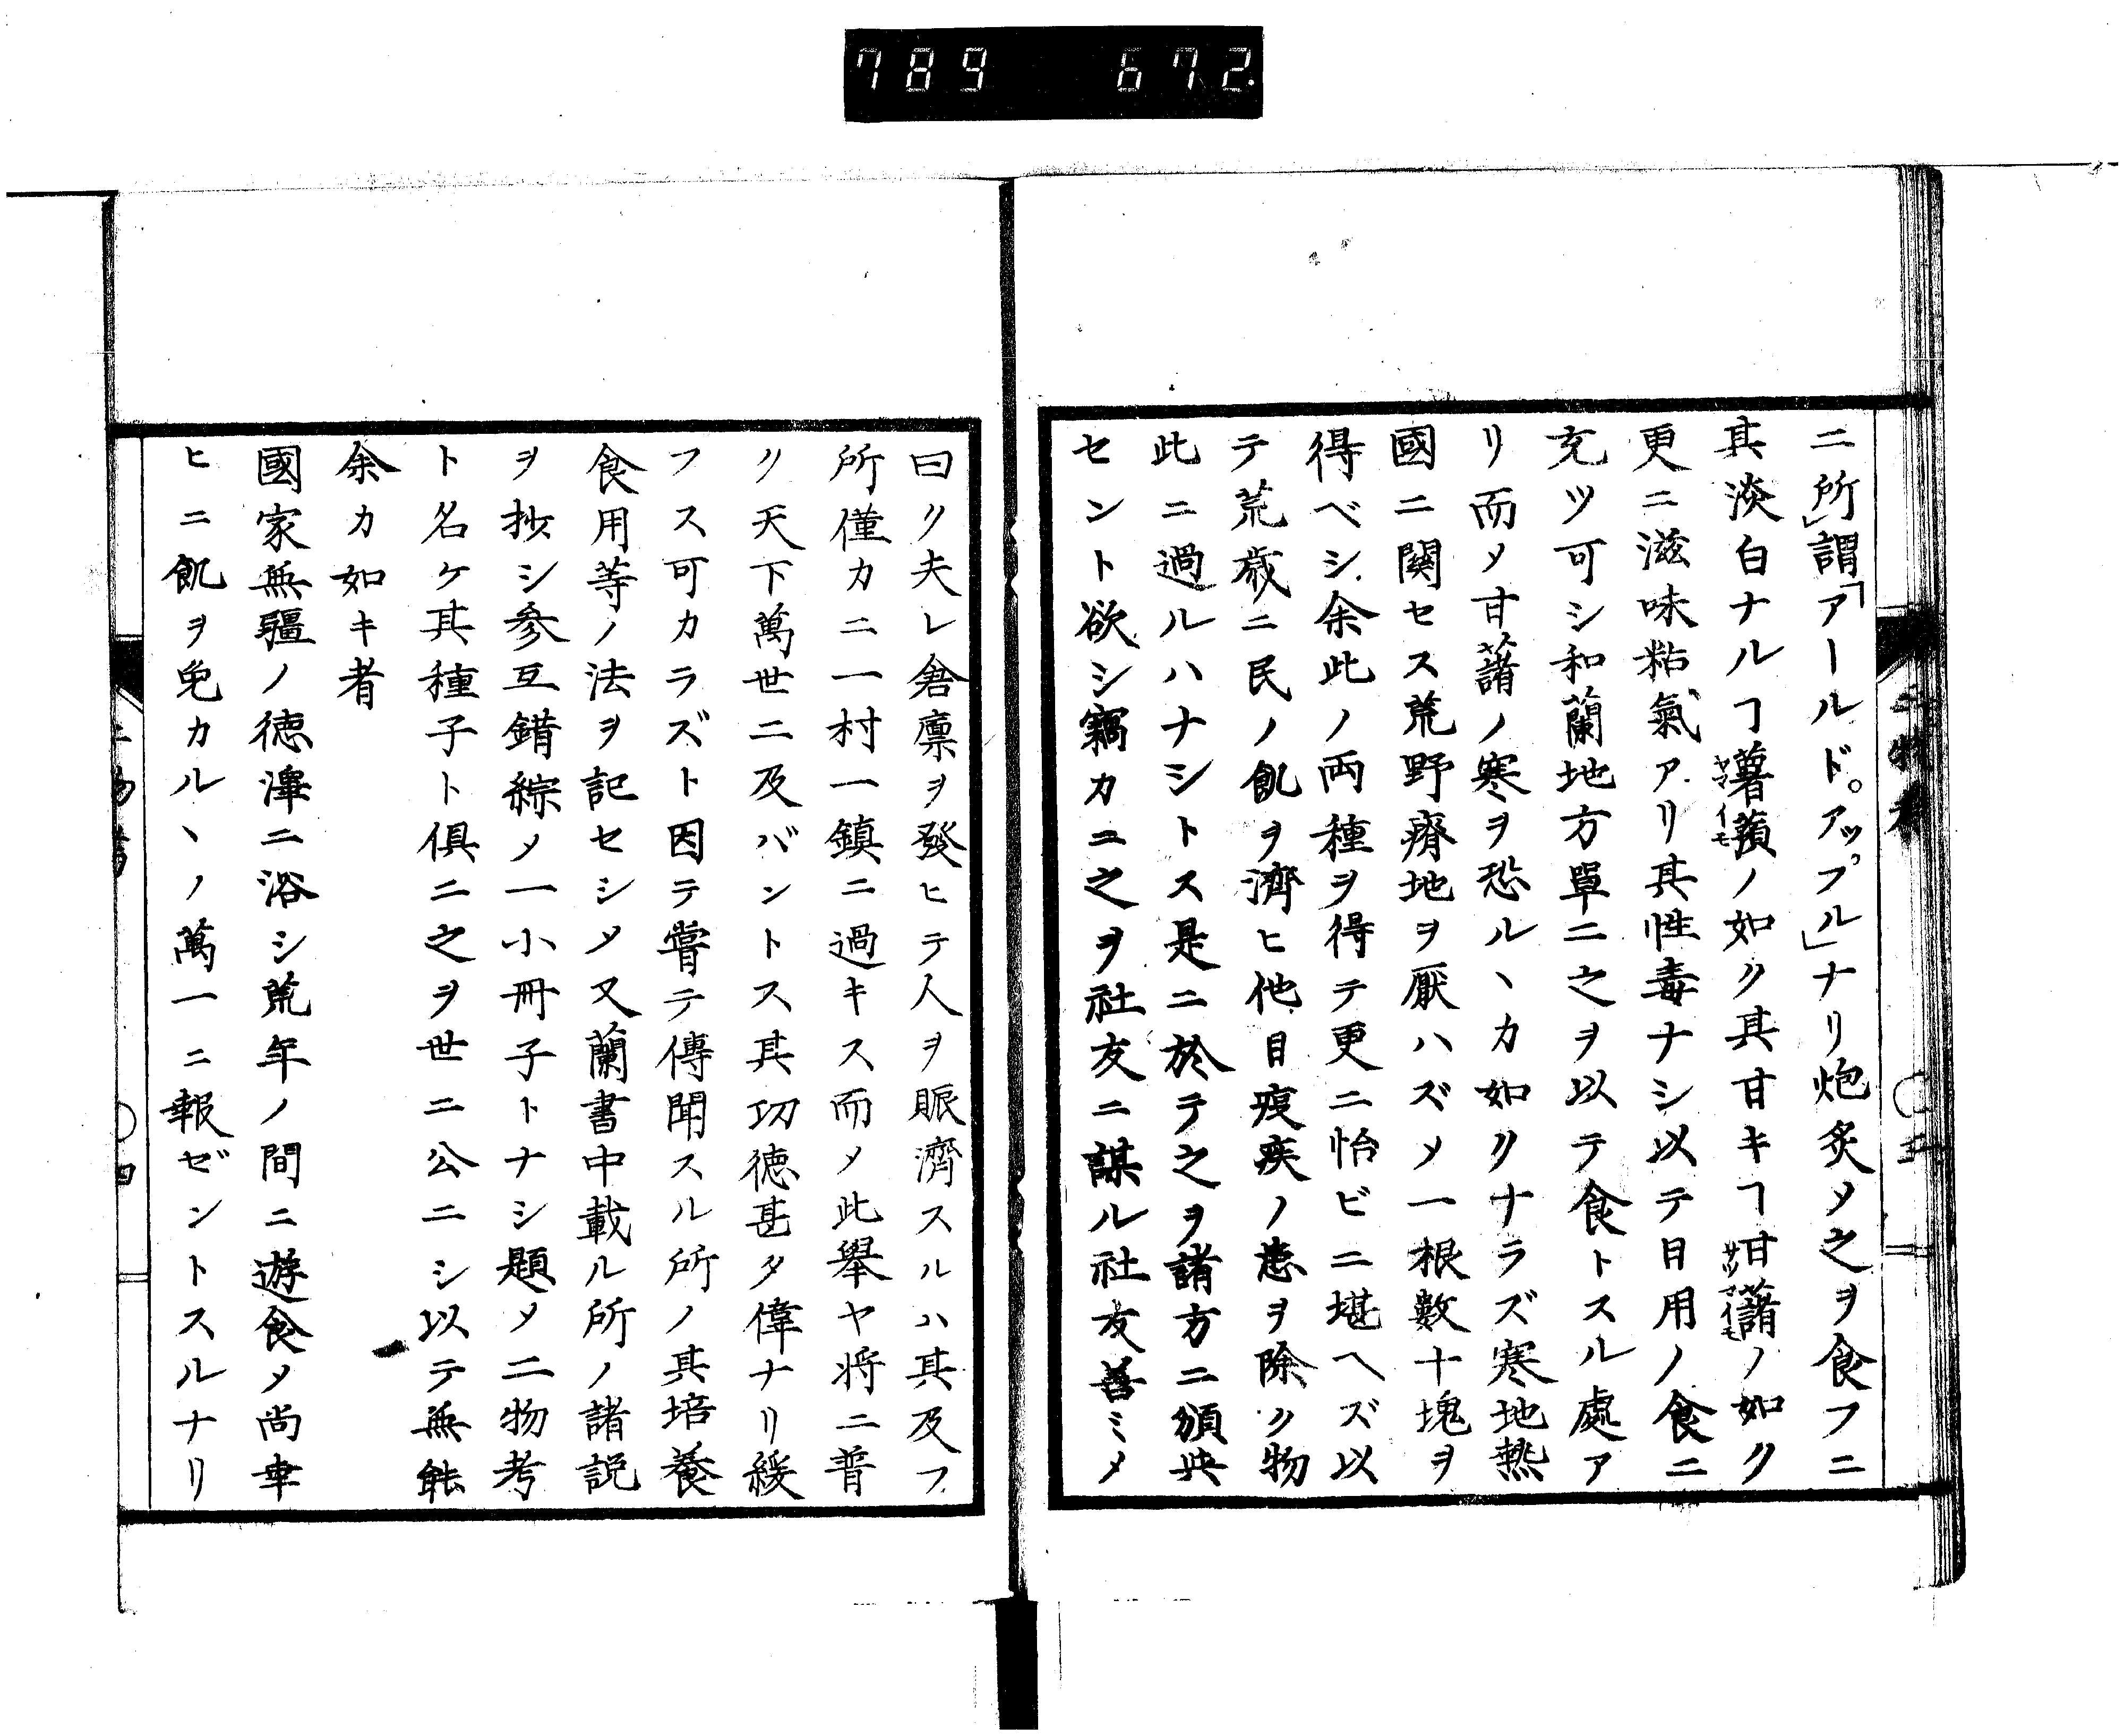 789 672.
ニ所謂「アールド。アップル」ナリ炮炙メ之ヲ食フニ
其淡白ナルヿ薯蕷ノ如ク其甘キヿ甘藷ノ如ク
ヤマイモ
サツマイモ
更ニ滋味粘氣アリ其性毒ナシ以テ日用ノ食ニ
充ツ可シ和蘭地方單ニ之ヲ以テ食トスル處ア
リ而メ甘藷ノ寒ヲ恐ルヽカ如クナラズ寒地熱
國ニ関セス荒野瘠地ヲ厭ハズメ一根數十塊ヲ
得ベシ余此ノ両種ヲ得テ更ニ怡ビニ堪ヘズ以
テ荒歳ニ民ノ飢ヲ濟ヒ他目疫疾ノ患ヲ除ク物
此ニ過ルハナシトス是ニ於テ之ヲ諸方ニ頒與
セント欲シ竊カニ之ヲ社友ニ謀ル社友善ミメ
曰ク夫レ倉廪ヲ發ヒテ人ヲ賑濟スルハ其及フ
所僅カニ一村一鎮ニ過キス而メ此舉ヤ将ニ普
ク天下萬世ニ及バントス其功徳甚タ偉ナリ緩
フス可カラズト因テ嘗テ傳聞スル所ノ其培養
食用等ノ法ヲ記セシメ又蘭書中載ル所ノ諸説
ヲ抄シ参互錯綜メ一小冊子トナシ題メ二物考
ト名ケ其種子ト俱ニ之ヲ世ニ公ニシ以テ無能
余カ如キ者
國家無疆ノ徳澤ニ浴シ荒年ノ間ニ遊食メ尚幸
ヒニ飢ヲ免カルヽノ萬一ニ報ゼントスルナリ
二物考
〇四